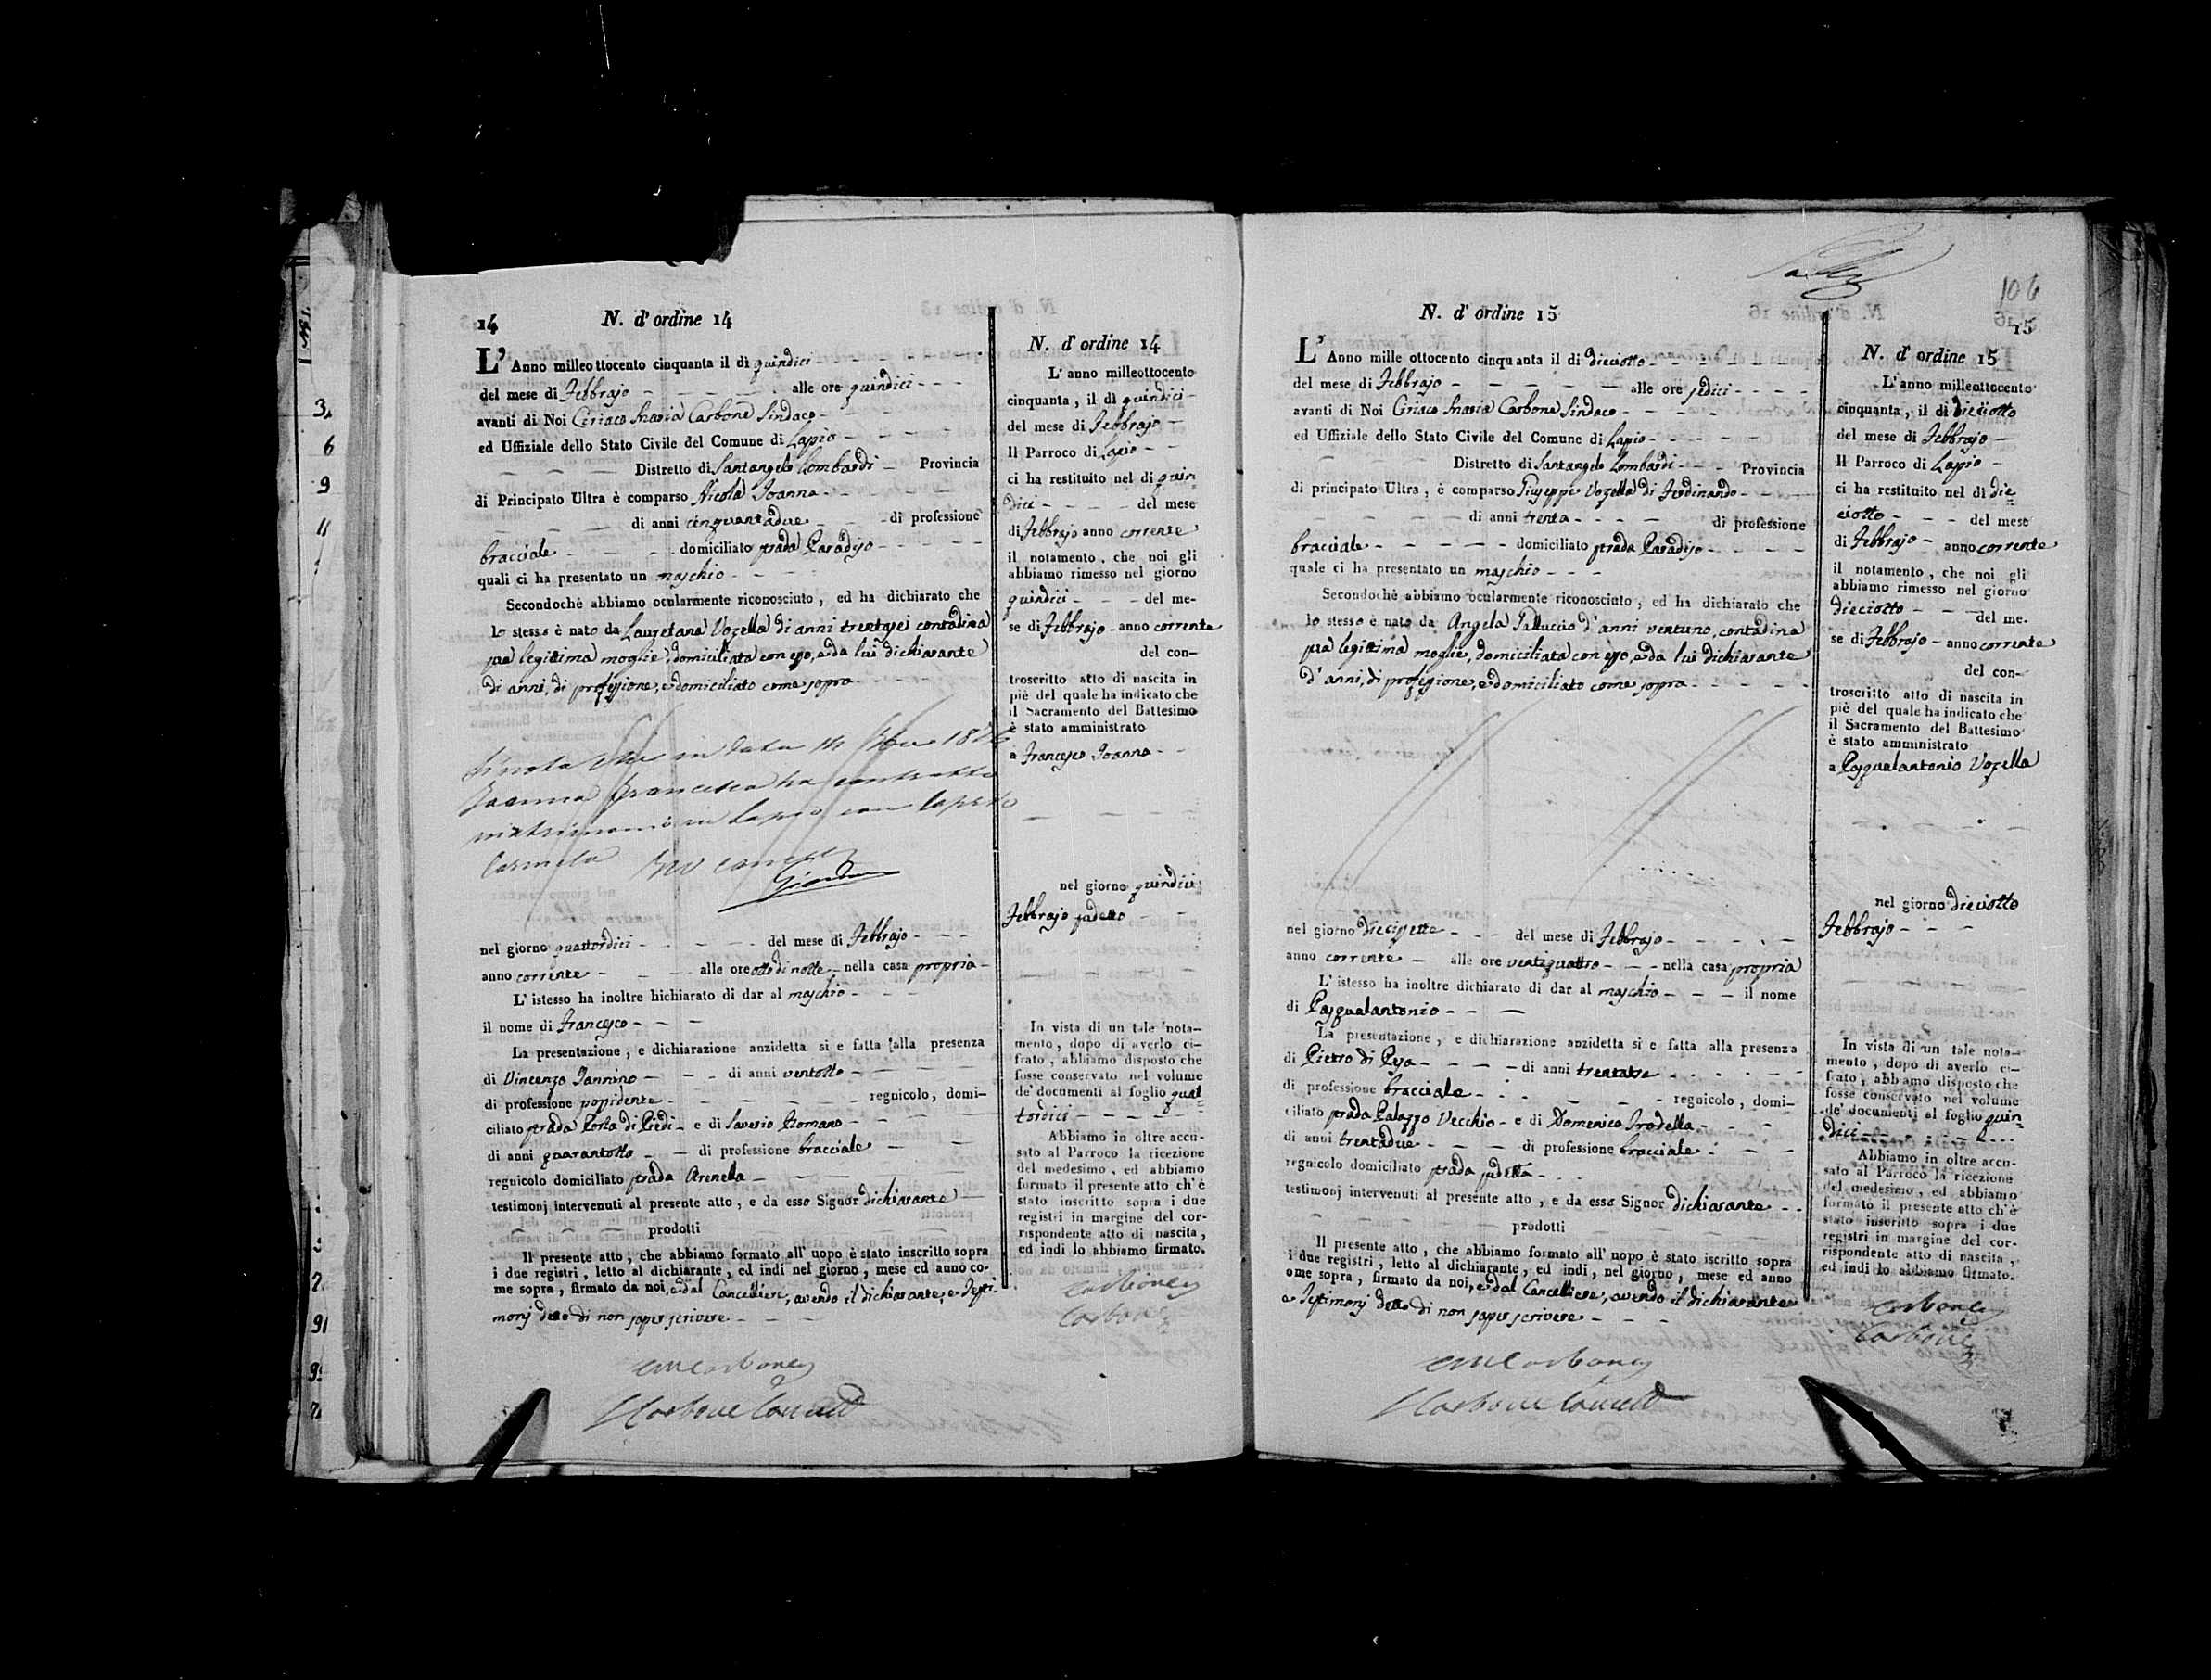 14
N. d' ordine 14
L' Anno milleottocento cinquanta il dì quindici
del mese di Febbrajo alle ore quindici
avanti di Noi Ciriaco Maria Carbone Sindaco
ed Uffiziale dello Stato Civile del Comune di Lapio
Distretto di Santangelo Lombardi Provincia
di Principato Ultra è comparso Nicola Joanna
di anni cinquantadue di professione
bracciale domiciliato strada Paradiso
quali ci ha presentato un maschio
Secondochè abbiamo ocularmente riconosciuto, ed ha dichiarato che
lo stesso è nato da Lauretana Vozella di anni trentasei contadina
sua legittima moglie, domiciliata con esso, e da lui dichiarante
di anni, di professione, e domiciliato come sopra
Si nota che in data 14
Joanna Francesco ha contratto
matrimonio in Lapio con
Carmela
nel giorno quattordici del mese di Febbrajo
anno corrente alle ore otto di notte nella casa propria
L' istesso ha inoltre hichiarato di dar al maschio
il nome di Francesco
La presentazione, e dichiarazione anzidetta si e fatta alla presenza
di Vincenzo Jannino di anni ventotto
di professione possidente regnicolo, domi-
ciliato strada Porta di Piedi e di Saverio Romano
di anni quarantotto di professione bracciale
regnicolo domiciliato strada Arenella
testimonj intervenuti al presente atto, e da esso Signor dichiarante
prodotti
Il presente atto, che abbiamo formato all' uopo è stato inscritto sopra
i due registri, letto al dichiarante, ed indi nel giorno, mese ed anno co-
me sopra, firmato da noi, e dal Cancelliere, avendo il dichiarante, e Testi-
monj detto di non saper scrivere
CMCarbone
Carbone Cancell
N. d' ordine 14
L' anno milleottocento
cinquanta, il dì quindici
del mese di Febbrajo
Il Parroco di Lapio
ci ha restituito nel dì quin
dici del mese
di Febbrajo anno corrente
il notamento, che noi gli
abbiamo rimesso nel giorno
quindici del me-
se di Febbrajo anno corrente
del con-
troscritto atto di nascita in
piè del quale ha indicato che
il Sacramento del Battesimo
è stato amministrato
a Francesco Joanna
nel giorno quindici
Febbrajo sudetto
In vista di un tale nota-
mento, dopo di averlo ci-
frato, abbiamo disposto che
fosse conservato nel volume
de' documenti al foglio quat
tordici
Abbiamo in oltre accu-
sato al Parroco la ricezione
del medesimo, ed abbiamo
formato il presente atto ch' è
stato inscritto sopra i due
registri in margine del cor-
rispondente atto di nascita,
ed indi lo abbiamo firmato.
Carbone
Carbone
106
15
N. d' ordine 15
L' Anno mille ottocento cinquanta il di dieciotto
del mese di Febbrajo alle ore sedici
avanti di Noi Ciriaco Maria Carbone Sindaco
ed Uffiziale dello Stato Civile del Comune di Lapio
Distretto di Santangelo Lombardi Provincia
di principato Ultra, è comparso Giuseppe Vozella di Ferdinando
di anni trenta di professione
bracciale domiciliato strada Paradiso
quale ci ha presentato un maschio
Secondochè abbiamo ocularmente riconosciuto, ed ha dichiarato che
lo stesso è nato da Angela Palluccio d' anni ventuno, contadina
sua legittima moglie, domiciliata con esso, e da lui dichiarante
d' anni, di professione, e domiciliato come sopra
nel giorno diecisette del mese di Febbrajo
anno corrente alle ore ventiquattro nella casa propria
L' istesso ha inoltre dichiarato di dar al maschio il nome
di Pasqualantonio
La presentazione, e dichiarazione anzidetta si e fatta alla presenza
di Pietro di Pesa di anni trentatre
di professione bracciale regnicolo, domi-
ciliato strada Palazzo Vecchio e di Domenico Trodella
di anni trentadue di professione bracciale
regnicolo domiciliato strada sudetta
testimonj intervenuti al presente atto, e da esso Signor dichiarante
prodotti
Il presente atto, che abbiamo formato all' uopo è stato iscritto sopra
i due registri, letto al dichiarante, ed indi, nel giorno, mese ed anno
ome sopra, firmato da noi, e dal Cancelliere, avendo il dichiarante
e Testimonj detto di non saper scrivere
CMCarbone
Carbone Cancell
N. d' ordine 15
L' anno milleottocento
cinquanta, il dì dieciotto
del mese di Febbrajo
Il Parroco di Lapio
ci ha restituito nel dì die
ciotto del mese
di Febbrajo anno corrente
il notamento, che noi gli
abbiamo rimesso nel giorno
dieciotto del me.
se di Febbrajo anno corrente
del con-
troscritto atto di nascita in
piè del quale ha indicato che
il Sacramento del Battesimo
è stato amministrato
a Pasqualantonio Vozella
nel giorno dieciotto
Febbrajo
In vista di un tale nota-
mento, dopo di averlo ci-
frato, abbiamo disposto che
fosse conservato nel volume
de' documenti al foglio quin
dici
Abbiamo in oltre accu-
sato al Parroco la ricezione
del medesimo, ed abbiamo
formato il presente atto ch' è
stato inscritto sopra i due
registri in margine del cor-
rispondente atto di nascita,
ed indi lo abbiamo firmato.
Carbone
Carbone